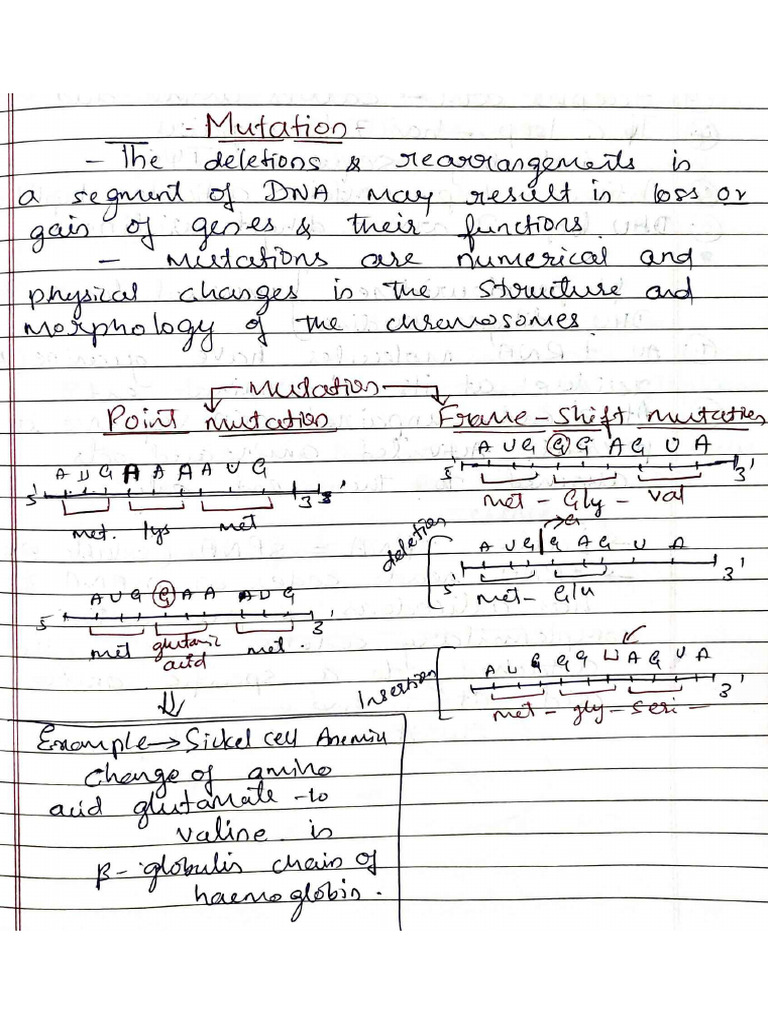 - Mutation -
- The deletions & rearrangements in
a segment of DNA may result in loss or
gain of genes & their functions.
- Mutations are numerical and
physical changes in the structure and
morphology of the chromosomes.
Mutation
Point mutation
Frame-Shift mutation
A U G A A A A U G
5' 3'
met. lys met
A U G G A A A U G
5' 3'
met glutamic acid met.
Example → Sickel cell Anemia
Change of amino
acid glutamate to
valine in
β-globulin chain of
haemoglobin.
A U G G G A G U A
5' 3'
met - Gly - val
deletion
G
A U G G A G U A
5' 3'
met - Glu
Insertion
A U G G G U A G U A
3'
met - gly - seri -